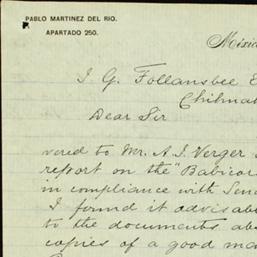 PABLO MARTINEZ DEL RIO.
APARTADO 250.
Méxic
J. G. Follansbee E
Chihuah
Dear Sir
vered to Mr. A. J. Verger
report on the "Babicor
in compliance with Seno
I found it advisab
to the documents abo
copies of a good ma